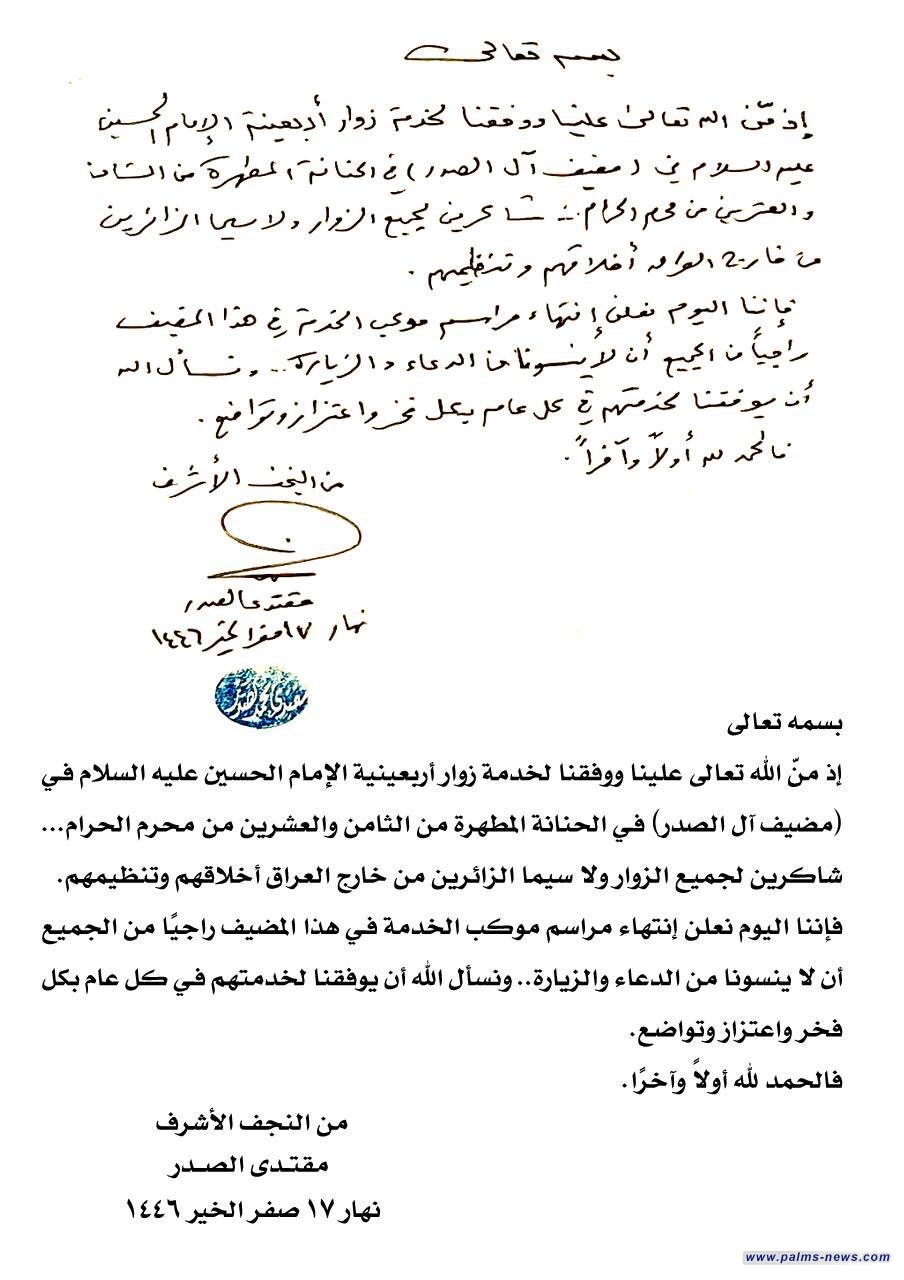 بسمه تعالى
إذ منّ الله تعالى علينا ووفقنا لخدمة زوار أربعينية الإمام الحسين
عليه السلام في (مضيف آل الصدر) في الحنانة المطهرة من الثامن
والعشرين من محرم الحرام... شاكرين لجميع الزوار ولا سيما الزائرين
من خارج العراق أخلاقهم وتنظيمهم.
فإننا اليوم نعلن إنتهاء مراسم موكب الخدمة في هذا المضيف
راجياً من الجميع أن لا ينسونا من الدعاء والزيارة.. ونسأل الله
أن يوفقنا لخدمتهم في كل عام بكل فخر واعتزاز وتواضع.
فالحمد لله أولاً وآخراً.
من النجف الأشرف
مقتدى الصدر
نهار ١٧ صفر الخير ١٤٤٦
بسمه تعالى
إذ منّ الله تعالى علينا ووفقنا لخدمة زوار أربعينية الإمام الحسين عليه السلام في
(مضيف آل الصدر) في الحنانة المطهرة من الثامن والعشرين من محرم الحرام...
شاكرين لجميع الزوار ولا سيما الزائرين من خارج العراق أخلاقهم وتنظيمهم.
فإننا اليوم نعلن إنتهاء مراسم موكب الخدمة في هذا المضيف راجيًا من الجميع
أن لا ينسونا من الدعاء والزيارة.. ونسأل الله أن يوفقنا لخدمتهم في كل عام بكل
فخر واعتزاز وتواضع.
فالحمد لله أولاً وآخرًا.
من النجف الأشرف
مقتـدى الصـدر
نهار ١٧ صفر الخير ١٤٤٦
www.palms-news.com